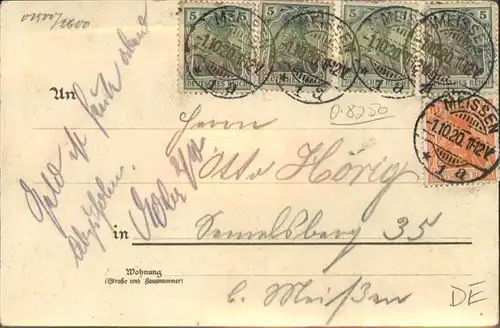 5 5 5 5
DEUTSCHES REICH
MEISSEN
1.10.20. 11-12V.
* 1 a
MEISSEN
1.10.20. 11-12V.
* 1 a
An
0.8250
Herrn
Otto Hörig
in Semelsberg 35
Wohnung
(Straße und Hausnummer)
b. Meißen
DE
Geld ist
abzuholen.